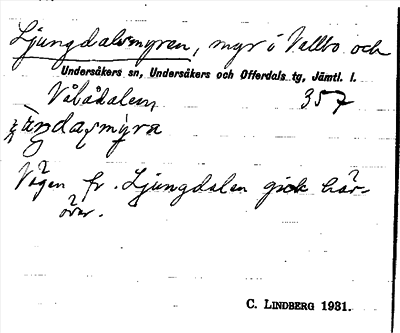 Ljungdalsmyren, myr i Vallbo och
Undersåkers sn, Undersåkers och Offerdals tg, Jämtl. l.
Vålådalen 357
Vägen fr. Ljungdalen gick här-
över.
C. LINDBERG 1931.